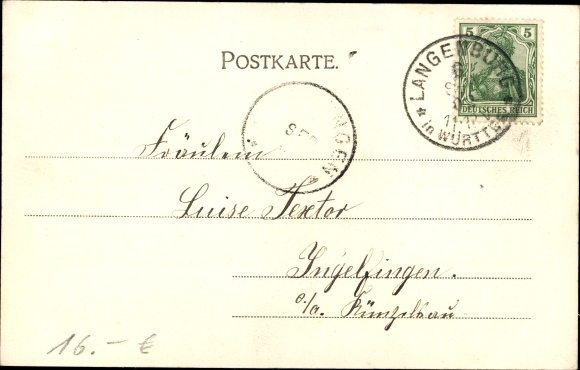 POSTKARTE.
5 5
DEUTSCHES REICH
LANGENBURG
11-12
in WÜRTTBG
NGEN
SE
Fräulein
Luise Textor
Ingelfingen.
c./a. Künzelsau
16.- €